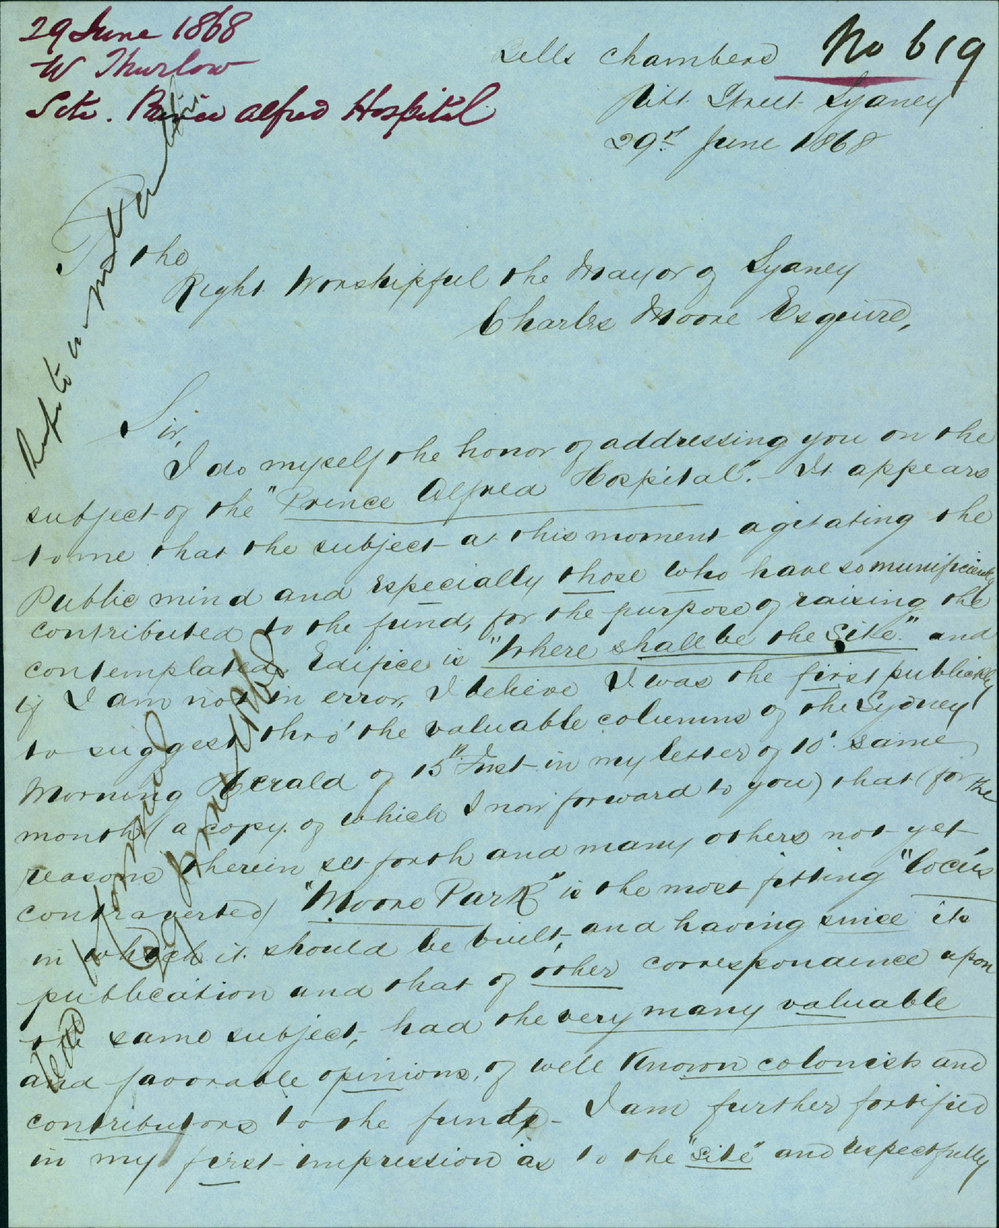 29 June 1868
W Thurlow
Site. Prince Alfred Hospital
No 619
Bells Chambers
Pitt Street Sydney
29th June 1868
To the
Right Worshipful the Mayor of Sydney
Charles Moore Esquire,
Sir,
I do myself the honor of addressing you on the
subject of the "Prince Alfred Hospital". It appears
to me that the subject at this moment agitating the
Public mind and especially those who have so munificiently
contributed to the funds for the purpose of raising the
contemplated Edifice is "Where shall be the Site." and
if I am not in error, I believe I was the first publickly
to suggest thro' the valuable columns of the Sydney
Morning Herald of 15th Inst in my letter of 10' same
month (a copy of which I now forward to you) that (for the
reasons therein set forth and many others not yet
contraverted) "Moore Park" is the most fitting "locus"
in which it should be built, and having since its
publication and that of other correspondence upon
the same subject, had the very many valuable
and favorable opinions, of well known colonists and
contributors to the funds - I am further fortified
in my first impression as to the "site" and respectfully
Refer to
29 June 1868